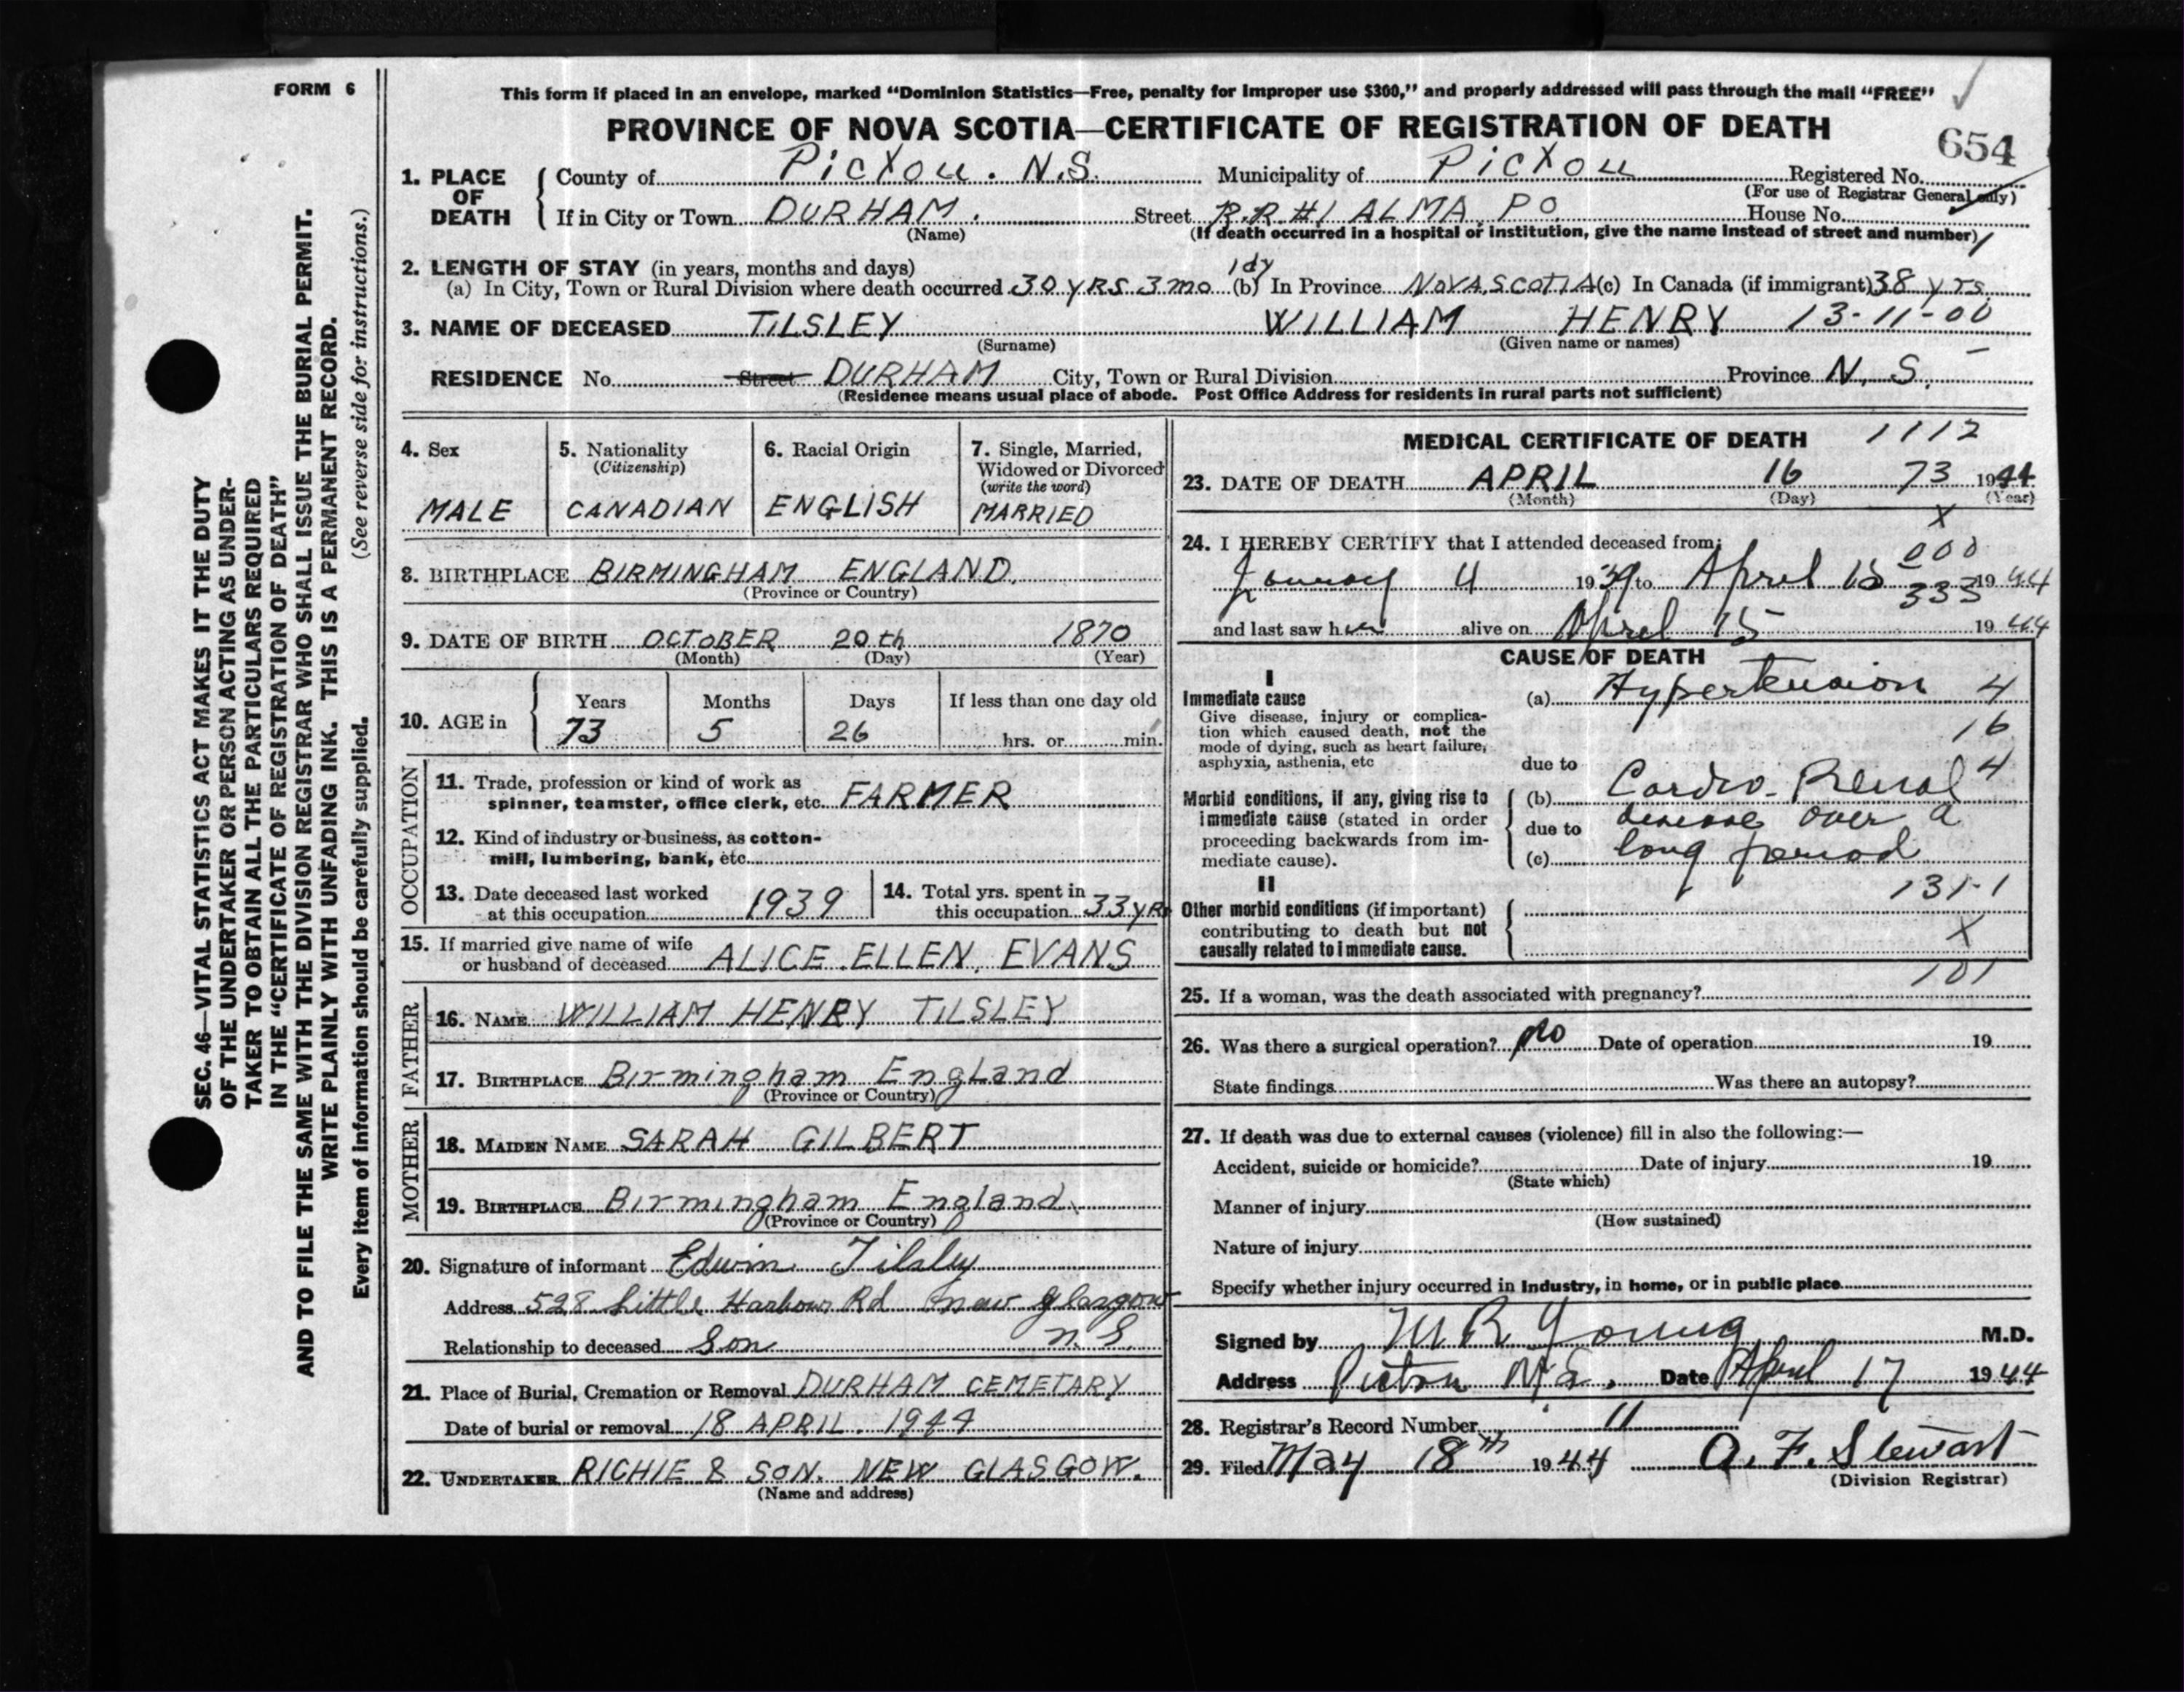 FORM 6
SEC. 46—VITAL STATISTICS ACT MAKES IT THE DUTY
OF THE UNDERTAKER OR PERSON ACTING AS UNDER-
TAKER TO OBTAIN ALL THE PARTICULARS REQUIRED
IN THE "CERTIFICATE OF REGISTRATION OF DEATH"
AND TO FILE THE SAME WITH THE DIVISION REGISTRAR WHO SHALL ISSUE THE BURIAL PERMIT.
WRITE PLAINLY WITH UNFADING INK. THIS IS A PERMANENT RECORD.
Every item of information should be carefully supplied. (See reverse side for instructions.)
This form if placed in an envelope, marked "Dominion Statistics—Free, penalty for improper use $300," and properly addressed will pass through the mail "FREE"
PROVINCE OF NOVA SCOTIA—CERTIFICATE OF REGISTRATION OF DEATH
654
1. PLACE OF DEATH
County of Pictou. N.S. Municipality of Pictou Registered No.
(For use of Registrar General only)
If in City or Town DURHAM. Street R.R #1 ALMA. PO. House No.
(Name) (If death occurred in a hospital or institution, give the name instead of street and number)
2. LENGTH OF STAY (in years, months and days)
(a) In City, Town or Rural Division where death occurred 30 YRS 3 mo 1 dy (b) In Province NOVA SCOTIA (c) In Canada (if immigrant) 38 yrs
3. NAME OF DECEASED TILSLEY WILLIAM HENRY 13-11-00
(Surname) (Given name or names)
RESIDENCE No. Street DURHAM City, Town or Rural Division Province N. S.
(Residence means usual place of abode. Post Office Address for residents in rural parts not sufficient)
4. Sex
MALE
5. Nationality
(Citizenship)
CANADIAN
6. Racial Origin
ENGLISH
7. Single, Married,
Widowed or Divorced
(write the word)
MARRIED
8. BIRTHPLACE BIRMINGHAM ENGLAND.
(Province or Country)
9. DATE OF BIRTH OCTOBER 20th 1870
(Month) (Day) (Year)
10. AGE in
Years Months Days If less than one day old
73 5 26 hrs. or min.
OCCUPATION
11. Trade, profession or kind of work as
spinner, teamster, office clerk, etc. FARMER
12. Kind of industry or business, as cotton-
mill, lumbering, bank, etc.
13. Date deceased last worked
at this occupation 1939
14. Total yrs. spent in
this occupation 33 YRS
15. If married give name of wife
or husband of deceased ALICE ELLEN, EVANS
FATHER
16. NAME WILLIAM HENRY TILSLEY
17. BIRTHPLACE Birmingham England
(Province or Country)
MOTHER
18. MAIDEN NAME SARAH GILBERT
19. BIRTHPLACE Birmingham England
(Province or Country)
20. Signature of informant Edwin Tilsley
Address 528 Little Harbour Rd New Glasgow
N. S.
Relationship to deceased Son
21. Place of Burial, Cremation or Removal DURHAM CEMETARY
Date of burial or removal 18 APRIL. 1944
22. UNDERTAKER RICHIE & SON. NEW GLASGOW.
(Name and address)
MEDICAL CERTIFICATE OF DEATH 1112
23. DATE OF DEATH APRIL 16 73 1944
(Month) (Day) (Year)
X
24. I HEREBY CERTIFY that I attended deceased from:
000
January 4 1939 to April 15 1944
333
and last saw h alive on April 15 1944
CAUSE OF DEATH
I
Immediate cause
Give disease, injury or complica-
tion which caused death, not the
mode of dying, such as heart failure,
asphyxia, asthenia, etc
(a) Hypertension 4
16
due to 4
Morbid conditions, if any, giving rise to
immediate cause (stated in order
proceeding backwards from im-
mediate cause).
(b) Cardio-Renal
due to disease over a
(c) long period
II
131-1
Other morbid conditions (if important)
contributing to death but not
causally related to immediate cause.
X
101
25. If a woman, was the death associated with pregnancy?
26. Was there a surgical operation? no Date of operation 19
State findings Was there an autopsy?
27. If death was due to external causes (violence) fill in also the following:—
Accident, suicide or homicide? Date of injury 19
(State which)
Manner of injury
(How sustained)
Nature of injury
Specify whether injury occurred in industry, in home, or in public place
Signed by M R Young M.D.
Address Pictou N.S. Date April 17 1944
28. Registrar's Record Number 11
29. Filed May 18th 1944 A. F. Stewart
(Division Registrar)